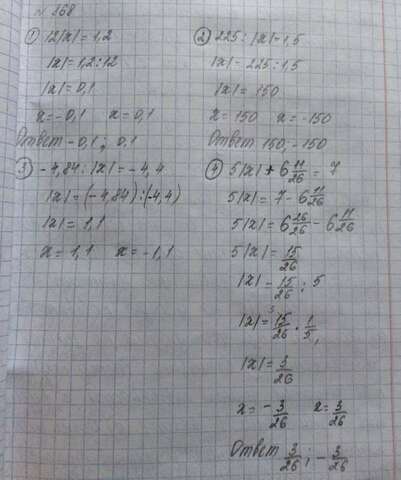 № 368
① 12|x| = 1,2
|x| = 1,2 : 12
|x| = 0,1
x = -0,1 x = 0,1
Ответ -0,1 ; 0,1
② 225 : |x| = 1,5
|x| = 225 : 1,5
|x| = 150
x = 150 x = -150
Ответ 150; -150
③ -4,84 : |x| = -4,4
|x| = (-4,84) : (-4,4)
|x| = 1,1
x = 1,1 x = -1,1
④ 5|x| + 6 11/26 = 7
5|x| = 7 - 6 11/26
5|x| = 6 26/26 - 6 11/26
5|x| = 15/26
|x| = 15/26 : 5
|x| = 15/26 · 1/5
|x| = 3/26
x = - 3/26 x = 3/26
Ответ 3/26 ; - 3/26